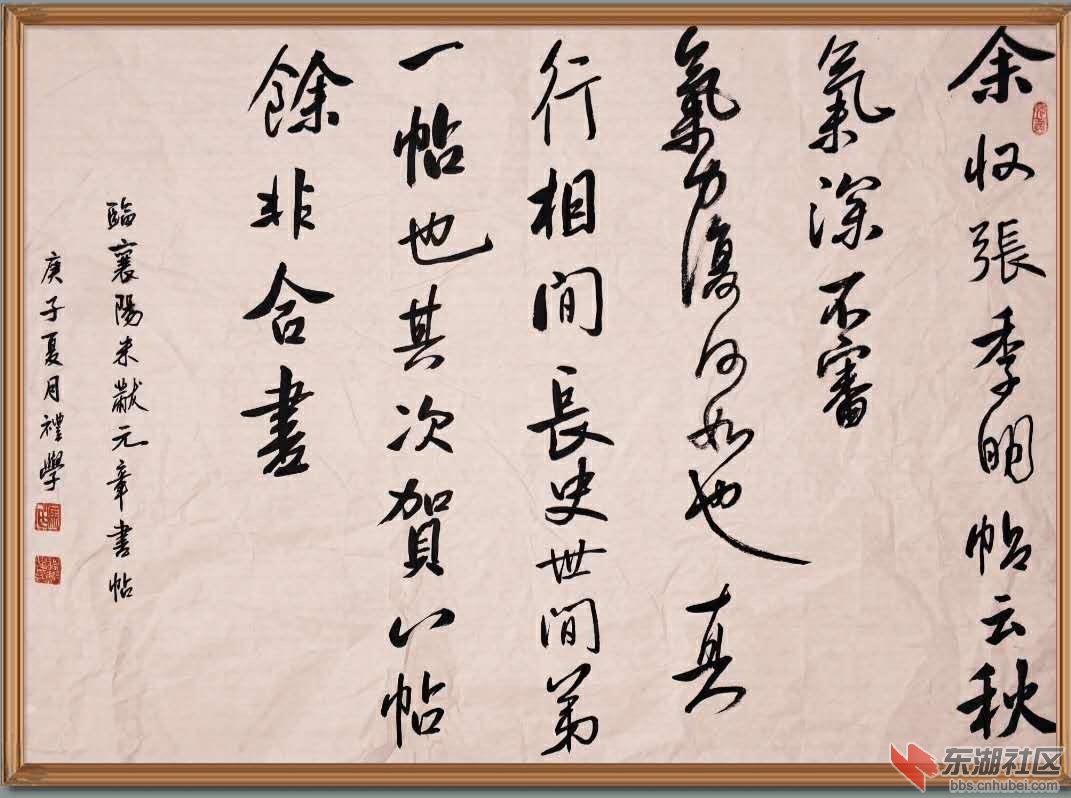 余収張季明帖云秋
氣深不審
氣力復何如也真
行相間長史世間第
一帖也其次賀八帖
餘非合書
臨襄陽米黻元章書帖
庚子夏月禮學
东湖社区
bbs.cnhubei.com